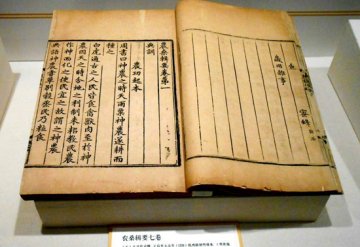 蜜蜂
歲用雜事
農桑輯要卷第一
典訓
農功起本
周書曰神農之時天雨粟神農遂耕而
種之
白虎通古之人民皆食禽獸肉至於神
農因天之時分地之利制耒耜教民農
作神而化之使民宜之故謂之神農
典語神農嘗草別穀烝民乃粒食
农桑辑要七卷